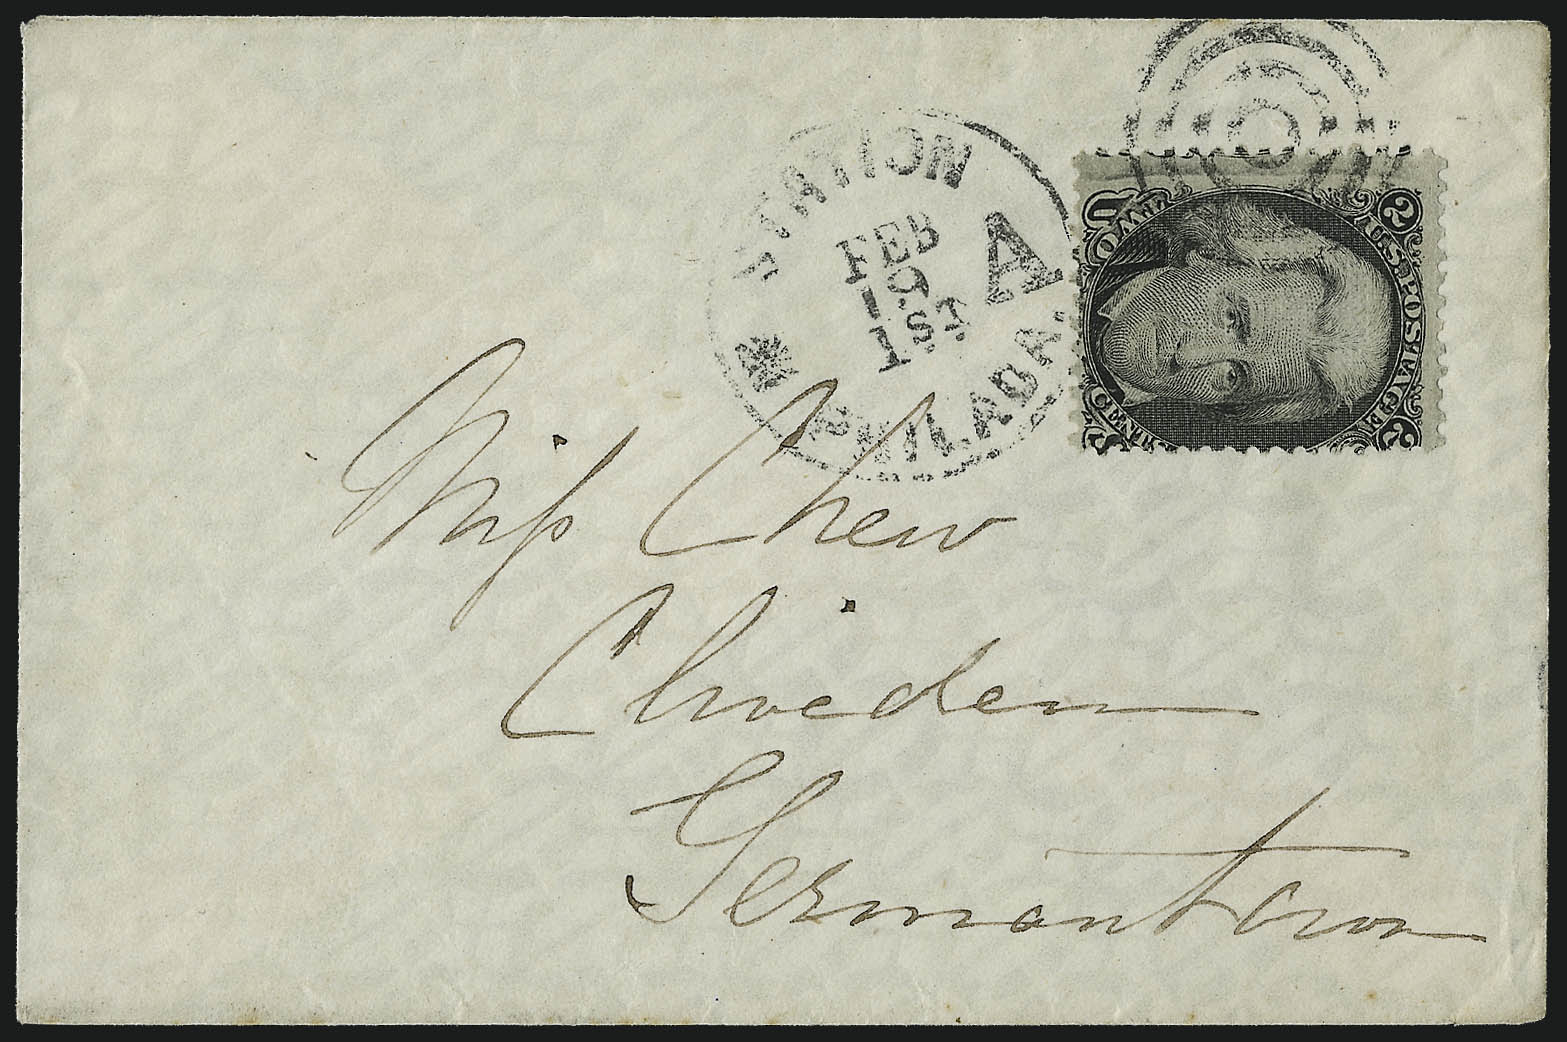 STATION
A
FEB
19
1ST
PHILADA.
U.S. POSTAGE
2 2
TWO CENTS
Miss Chew
Cliveden
Germantown